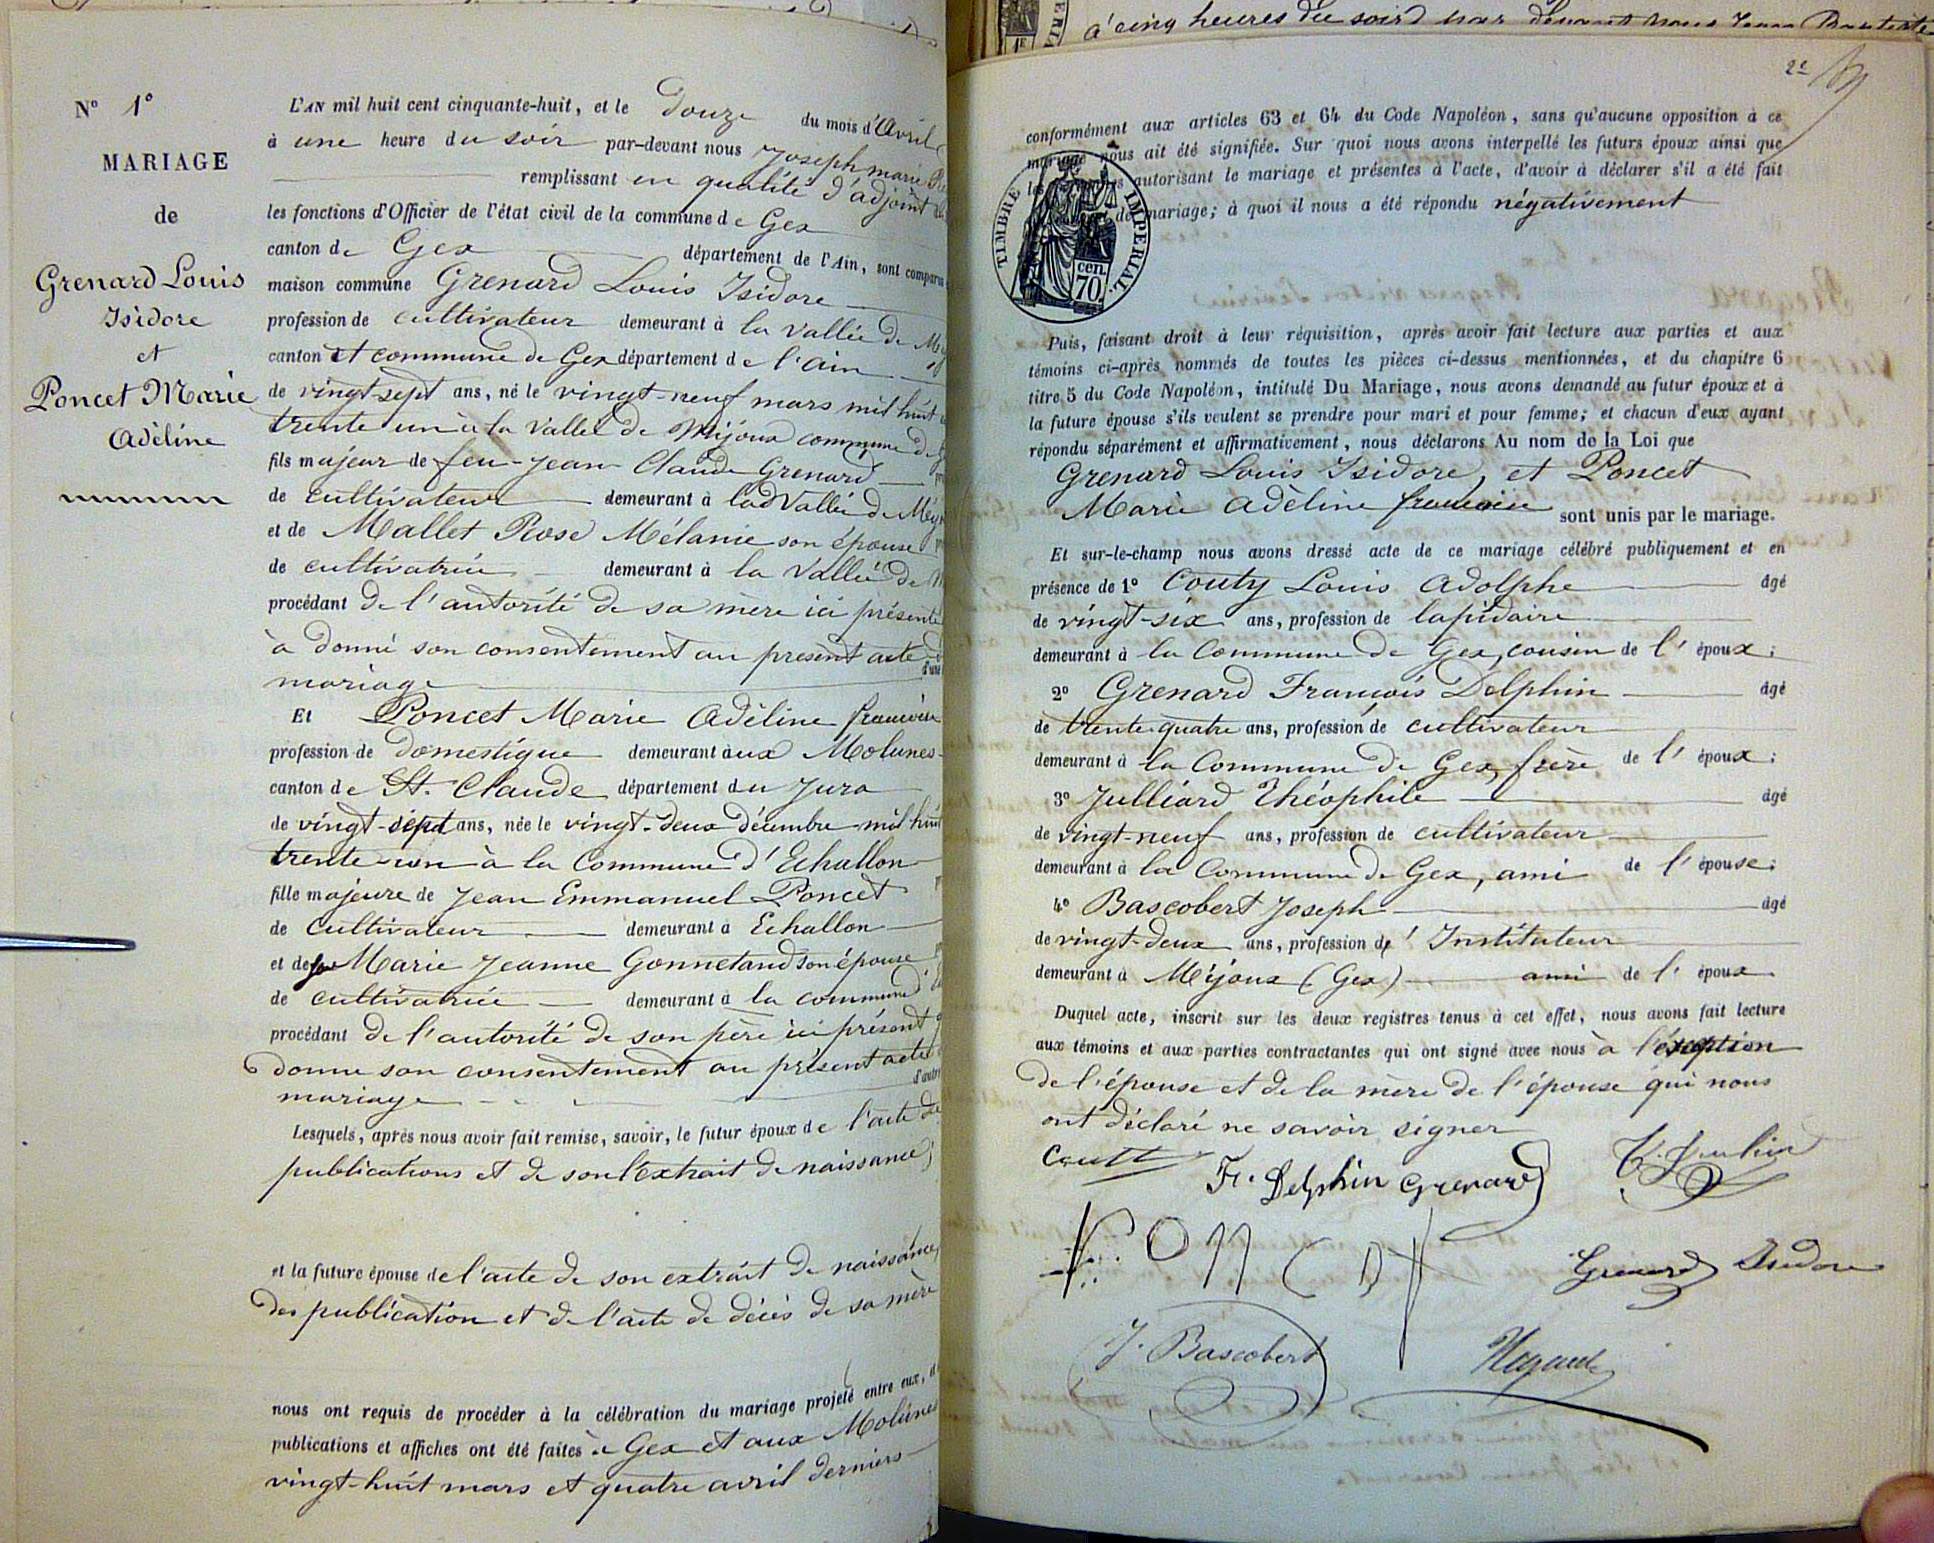 N° 1°
MARIAGE
de
Grenard Louis
Isidore
et
Poncet Marie
Adèline
L'AN mil huit cent cinquante-huit, et le douze du mois d'Avril
à une heure du soir par-devant nous Joseph marie
remplissant en qualité d'adjoint
les fonctions d'Officier de l'état civil de la commune de Gex
canton de Gex département de l'Ain, sont comparus
maison commune Grenard Louis Isidore
profession de cultivateur demeurant à la Vallée de
canton et commune de Gex département de l'ain
de vingt-sept ans, né le vingt-neuf mars mil huit
trente un à la Vallée de Mijoux commune de
fils majeur de feu Jean Claude Grenard
de cultivateur demeurant à la Vallée de
et de Mallet Rose Mélanie son épouse
de cultivatrice demeurant à la Vallée de
procédant de l'autorité de sa mère ici présente
à donné son consentement au présent acte
mariage
Et Poncet Marie Adèline françoise
profession de domestique demeurant aux Molunes
canton de St. Claude département du Jura
de vingt-sept ans, née le vingt-deux décembre mil huit
trente-un à la Commune d'Echallon
fille majeure de Jean Emmanuel Poncet
de Cultivateur demeurant à Echallon
et de feu Marie Jeanne Gonnetand son épouse
de cultivatrice demeurant à la commune d'
procédant de l'autorité de son père ici présent
donne son consentement au présent acte
mariage
Lesquels, après nous avoir fait remise, savoir, le futur époux de l'acte de
publications et de son l'extrait de naissance;
et la future épouse de l'acte de son extrait de naissance,
des publication et de l'acte de décès de sa mère
nous ont requis de procéder à la célébration du mariage projeté entre eux,
publications et affiches ont été faites à Gex et aux Molunes
vingt-huit mars et quatre avril derniers
à cinq heures du soir par devant nous Jean Baptiste
conformément aux articles 63 et 64 du Code Napoléon, sans qu'aucune opposition à ce
mariage nous ait été signifiée. Sur quoi nous avons interpellé les futurs époux ainsi que
les autorisant le mariage et présentes à l'acte, d'avoir à déclarer s'il a été fait
de mariage; à quoi il nous a été répondu négativement
TIMBRE IMPERIAL
cen.
70
Puis, faisant droit à leur réquisition, après avoir fait lecture aux parties et aux
témoins ci-après nommés de toutes les pièces ci-dessus mentionnées, et du chapitre 6
titre 5 du Code Napoléon, intitulé Du Mariage, nous avons demandé au futur époux et à
la future épouse s'ils veulent se prendre pour mari et pour femme; et chacun d'eux ayant
répondu séparément et affirmativement, nous déclarons Au nom de la Loi que
Grenard Louis Isidore, et Poncet
Marie Adèline françoise sont unis par le mariage.
Et sur-le-champ nous avons dressé acte de ce mariage célébré publiquement et en
présence de 1° Couty Louis Adolphe âgé
de vingt-six ans, profession de lapidaire
demeurant à la Commune de Gex, cousin de l'époux;
2° Grenard François Delphin âgé
de trente-quatre ans, profession de cultivateur
demeurant à la Commune de Gex, frère de l'époux;
3° Julliard Théophile âgé
de vingt-neuf ans, profession de cultivateur
demeurant à la Commune de Gex, ami de l'épouse;
4° Bascobert Joseph âgé
de vingt-deux ans, profession d'Instituteur
demeurant à Mijoux (Gex) ami de l'époux
Duquel acte, inscrit sur les deux registres tenus à cet effet, nous avons fait lecture
aux témoins et aux parties contractantes qui ont signé avec nous à l'éxception
de l'épouse et de la mère de l'épouse qui nous
ont déclaré ne savoir signer
Fr. Delphin Grenard
Grenard Isidore
J. Bascobert